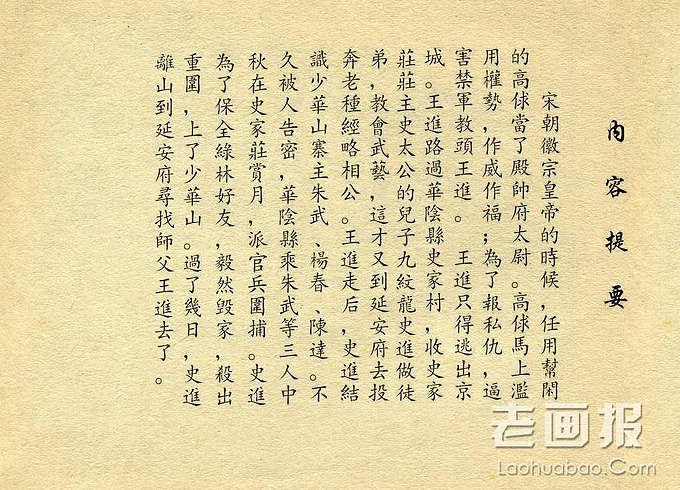 内容提要
宋朝徽宗皇帝的時候，任用幫閑
的高俅當了殿帥府太尉。高俅馬上濫
用權勢，作威作福；為了報私仇，逼
害禁軍教頭王進。王進只得逃出京
城。王進路過華陰縣史家村，收史家
莊莊主史太公的兒子九紋龍史進做徒
弟，教會武藝，這才又到延安府去投
奔老种經略相公。王進走后，史進結
識少華山寨主朱武、楊春、陳達。不
久被人告密，華陰縣乘朱武等三人中
秋在史家莊賞月，派官兵圍捕。史進
為了保全綠林好友，毅然毀家，殺出
重圍，上了少華山。過了幾日，史進
離山到延安府尋找師父王進去了。
老画报
Laohuabao.Com